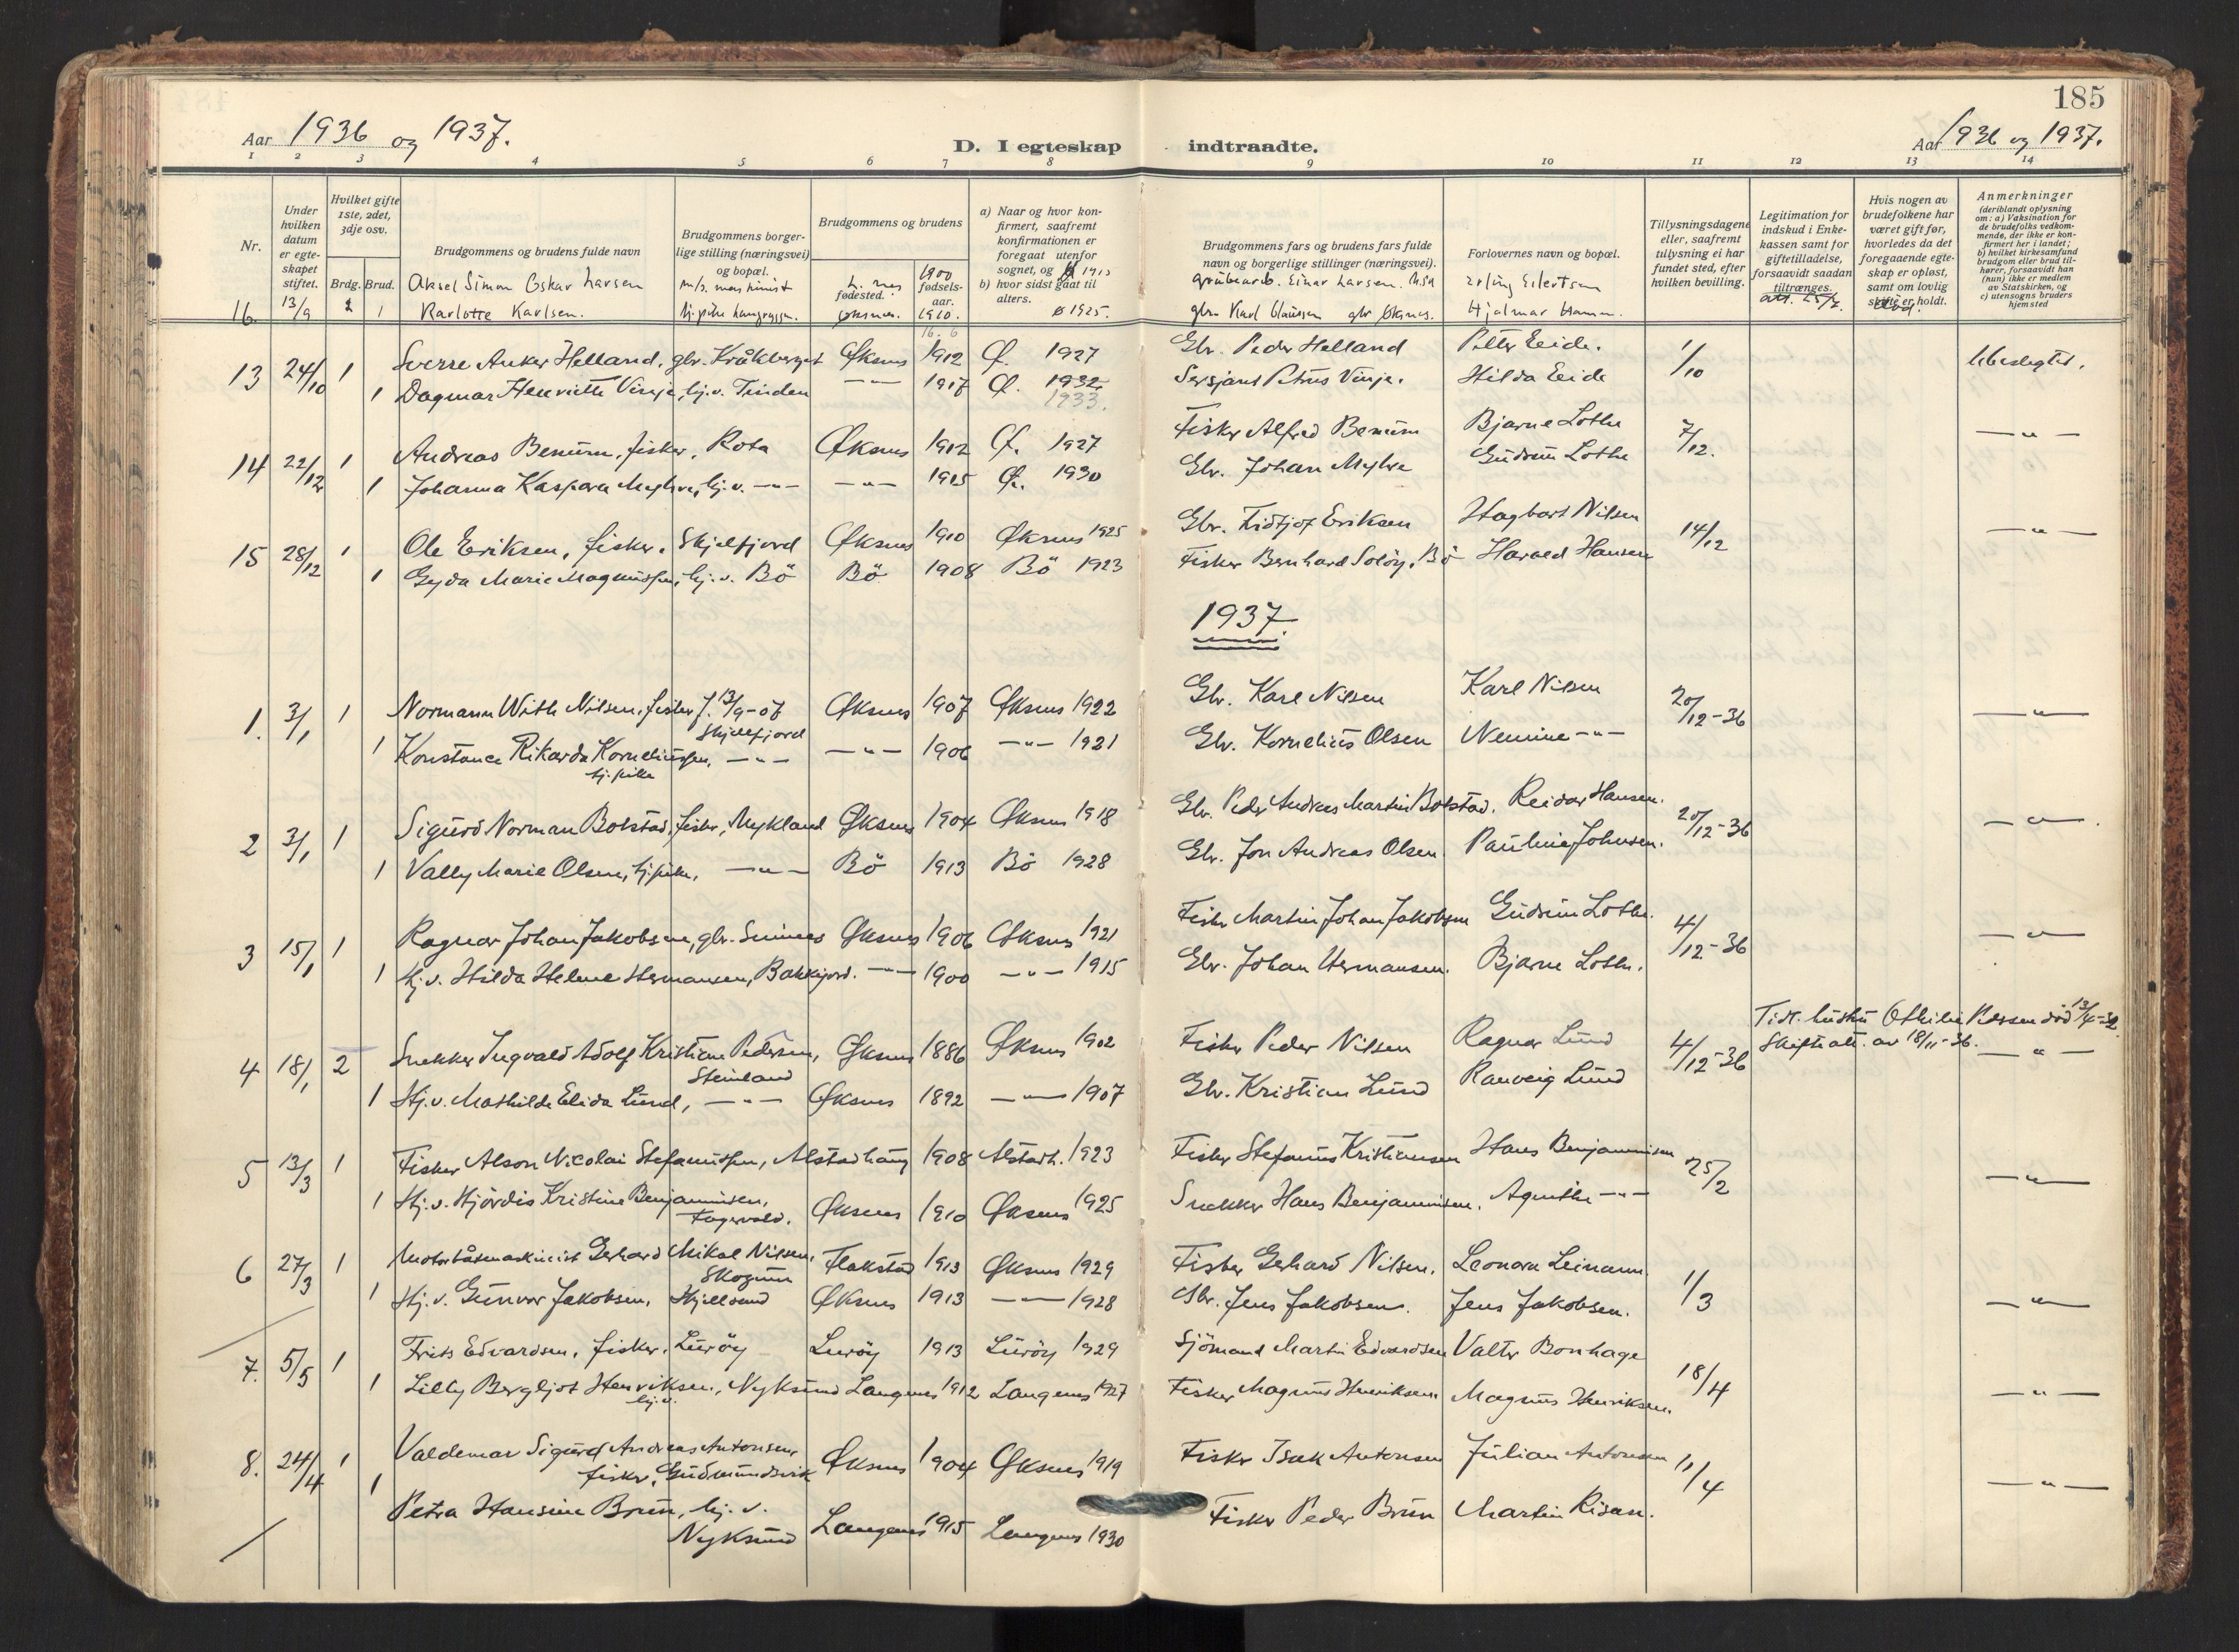 185
Aar 1936 og 1937.
D. I egteskap indtraadte.
Aar 1936 og 1937.
1 2 3 4 5 6 7 8 9 10 11 12 13 14
Nr.
Under hvilken datum er egteskapet stiftet.
Hvilket gifte 1ste, 2det, 3dje osv.
Brdg. Brud.
Brudgommens og brudens fulde navn
Brudgommens borgerlige stilling (næringsvei) og bopæl.
Brudgommens og brudens
fødested.
fødselsaar.
a) Naar og hvor konfirmert, saafremt konfirmationen er foregaat utenfor sognet, og
b) hvor sidst gaat til alters.
Brudgommens fars og brudens fars fulde navn og borgerlige stillinger (næringsvei).
Forlovernes navn og bopæl.
Tillysningsdagene eller, saafremt tillysning ei har fundet sted, efter hvilken bevilling.
Legitimation for indskud i Enkekassen samt for giftetilladelse, forsaavidt saadan tiltrænges.
Hvis nogen av brudefolkene har været gift før, hvorledes da det foregaaende egteskap er opløst, samt om lovlig skifte er holdt.
Anmerkninger
(deriblandt oplysning om: a) Vaksination for de brudefolks vedkommende, der ikke er konfirmert her i landet; b) hvilket kirkesamfund brudgom eller brud tilhører, forsaavidt han (hun) ikke er medlem av Statskirken, og c) utensogns bruders hjemsted
Aksel Simon Oskar Larsen m/s. maskinist 1900 Einar Larsen. Erling Eilertsen
16. 13/9 2 1 Karlotte Karlsen. Øksnes. 1910. Ø 1925. gbr. Karl Claussen gbr Øksnes. Hjalmar Hamn.
16. 6
13 24/10 1 Sverre Anker Helland, gbr. Kråkberget Øksnes 1912 Ø. 1927 Gbr. Peder Helland Petter Eide. 1/10 Ubeslegtet.
1 Dagmar Henriette Vinje, hj.v. Tinden -"- 1917 Ø. 1932 Sersjant Petrus Vinje. Hilda Eide
1933.
14 22/12 1 Andreas Benum, fisker, Rota Øksnes 1912 Ø. 1927 Fisker Alfred Benum Bjarne Lothe 7/12. -"-
1 Johanna Kaspara Myhre, hj.v. -"- -"- 1915 Ø. 1930 Gbr. Johan Myhre Gudrun Lothe
15 28/12 1 Ole Eriksen, fisker, Skjelfjord Øksnes 1910 Øksnes 1925 Gbr. Fidtjof Eriksen Hagbart Nilsen 14/12 -"-
1 Gyda Marie Magnussen, hj.v. Bö Bö 1908 Bö 1923 Fisker Bernhard Solöy, Bö Harald Hansen
1937.
1. 3/1 1 Normann With Nilsen, fisker f. 13/9-07 Øksnes 1907 Øksnes 1922 Gbr. Karl Nilsen Karl Nilsen 20/12-36 -"-
Skjelfjord
1 Konstance Rikarda Korneliussen, -"- -"- 1906 -"- 1921 Gbr. Kornelius Olsen Nemine -"-
hj.pike
2 3/1 1 Sigurd Norman Bolstad, fisker, Mykland Øksnes 1904 Øksnes 1918 Gbr. Peder Andreas Martin Bolstad. Reidar Hansen. 20/12-36 -"-
1 Vally Marie Olsen, hj.pike, -"- Bö 1913 Bö 1928 Gbr. Jon Andreas Olsen. Pauline Johnsen.
3 15/1 1 Ragnar Johan Jakobsen, gbr. Sminnes Øksnes 1906 Øksnes 1921 Fisker Martin Johan Jakobsen Gudrun Lothe. 4/12-36 -"-
1 Hj.v. Hilda Helene Hermansen, Bakkejord. -"- 1900 -"- 1915 Gbr. Johan Hermansen. Bjarne Lothe.
4 18/1 2 Snekker Ingvald Adolf Kristian Pedersen, Øksnes 1886 Øksnes 1902 Fisker Peder Nilsen Ragnar Lund 4/12-36 Tidl. hustru Othilie død 13/4-32 Skifteatt. av 18/11-36. -"-
Steinland
1 Hj.v. Mathilde Elida Lund, -"- Øksnes 1892 -"- 1907 Gbr. Kristian Lund Ranveig Lund
5 13/3 1 Fisker Alson Nicolai Stefanussen, Alstadhaug 1908 Alstadh. 1923 Fisker Stefanus Kristiansen Hans Benjaminsen 25/2 -"-
1 Hj.v. Hjördis Kristine Benjaminsen, Fagervold. Øksnes 1910 Øksnes 1925 Snekker Hans Benjaminsen. Agnethe -"-
6 27/3 1 Motorbåtmaskinist Gerhard Mikal Nilsen, Flakstad 1913 Øksnes 1929 Fisker Gerhard Nilsen. Leonora Leinann. 1/3 -"-
Skogum
1 Hj.v. Gunvor Jakobsen, Skjellsund Øksnes 1913 -"- 1928 Gbr. Jens Jakobsen. Jens Jakobsen.
7. 5/5 1 Frits Edvardsen, fisker, Luröy Luröy 1913 Luröy 1929 Sjömand Martin Edvardsen Valter Bonhage 18/4 -"-
1 Lilly Bergljot Henriksen, Nyksund Langenes 1912 Langenes 1927 Fisker Magnus Henriksen Magnus Henriksen.
hj.v.
8. 24/4 1 Valdemar Sigurd Andreas Antonsen, Øksnes 1904 Øksnes 1919 Fisker Isak Antonsen Julian Antonsen 11/4 -"-
fisker, Gudmundsvik
1 Petra Hansine Brun, hj.v. Nyksund Langenes 1915 Langenes 1930 Fisker Peder Brun Martin Risan.